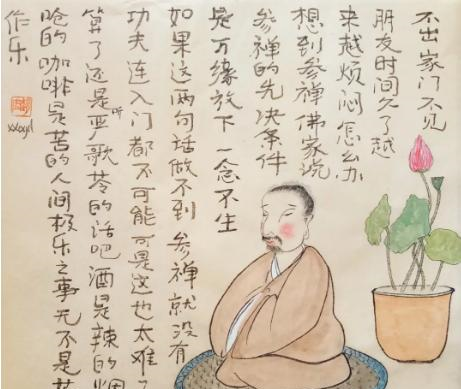 不出家门不见
朋友时间久了越
来越烦闷怎么办
想到参禅佛家说
参禅的先决条件
是万缘放下一念不生
如果这两句话做不到参禅就没有
功夫连入门都不可能可是这也太难了
算了还是听严歌苓的话吧酒是辣的烟
呛的咖啡是苦的人间极乐之事无不是苦
作乐